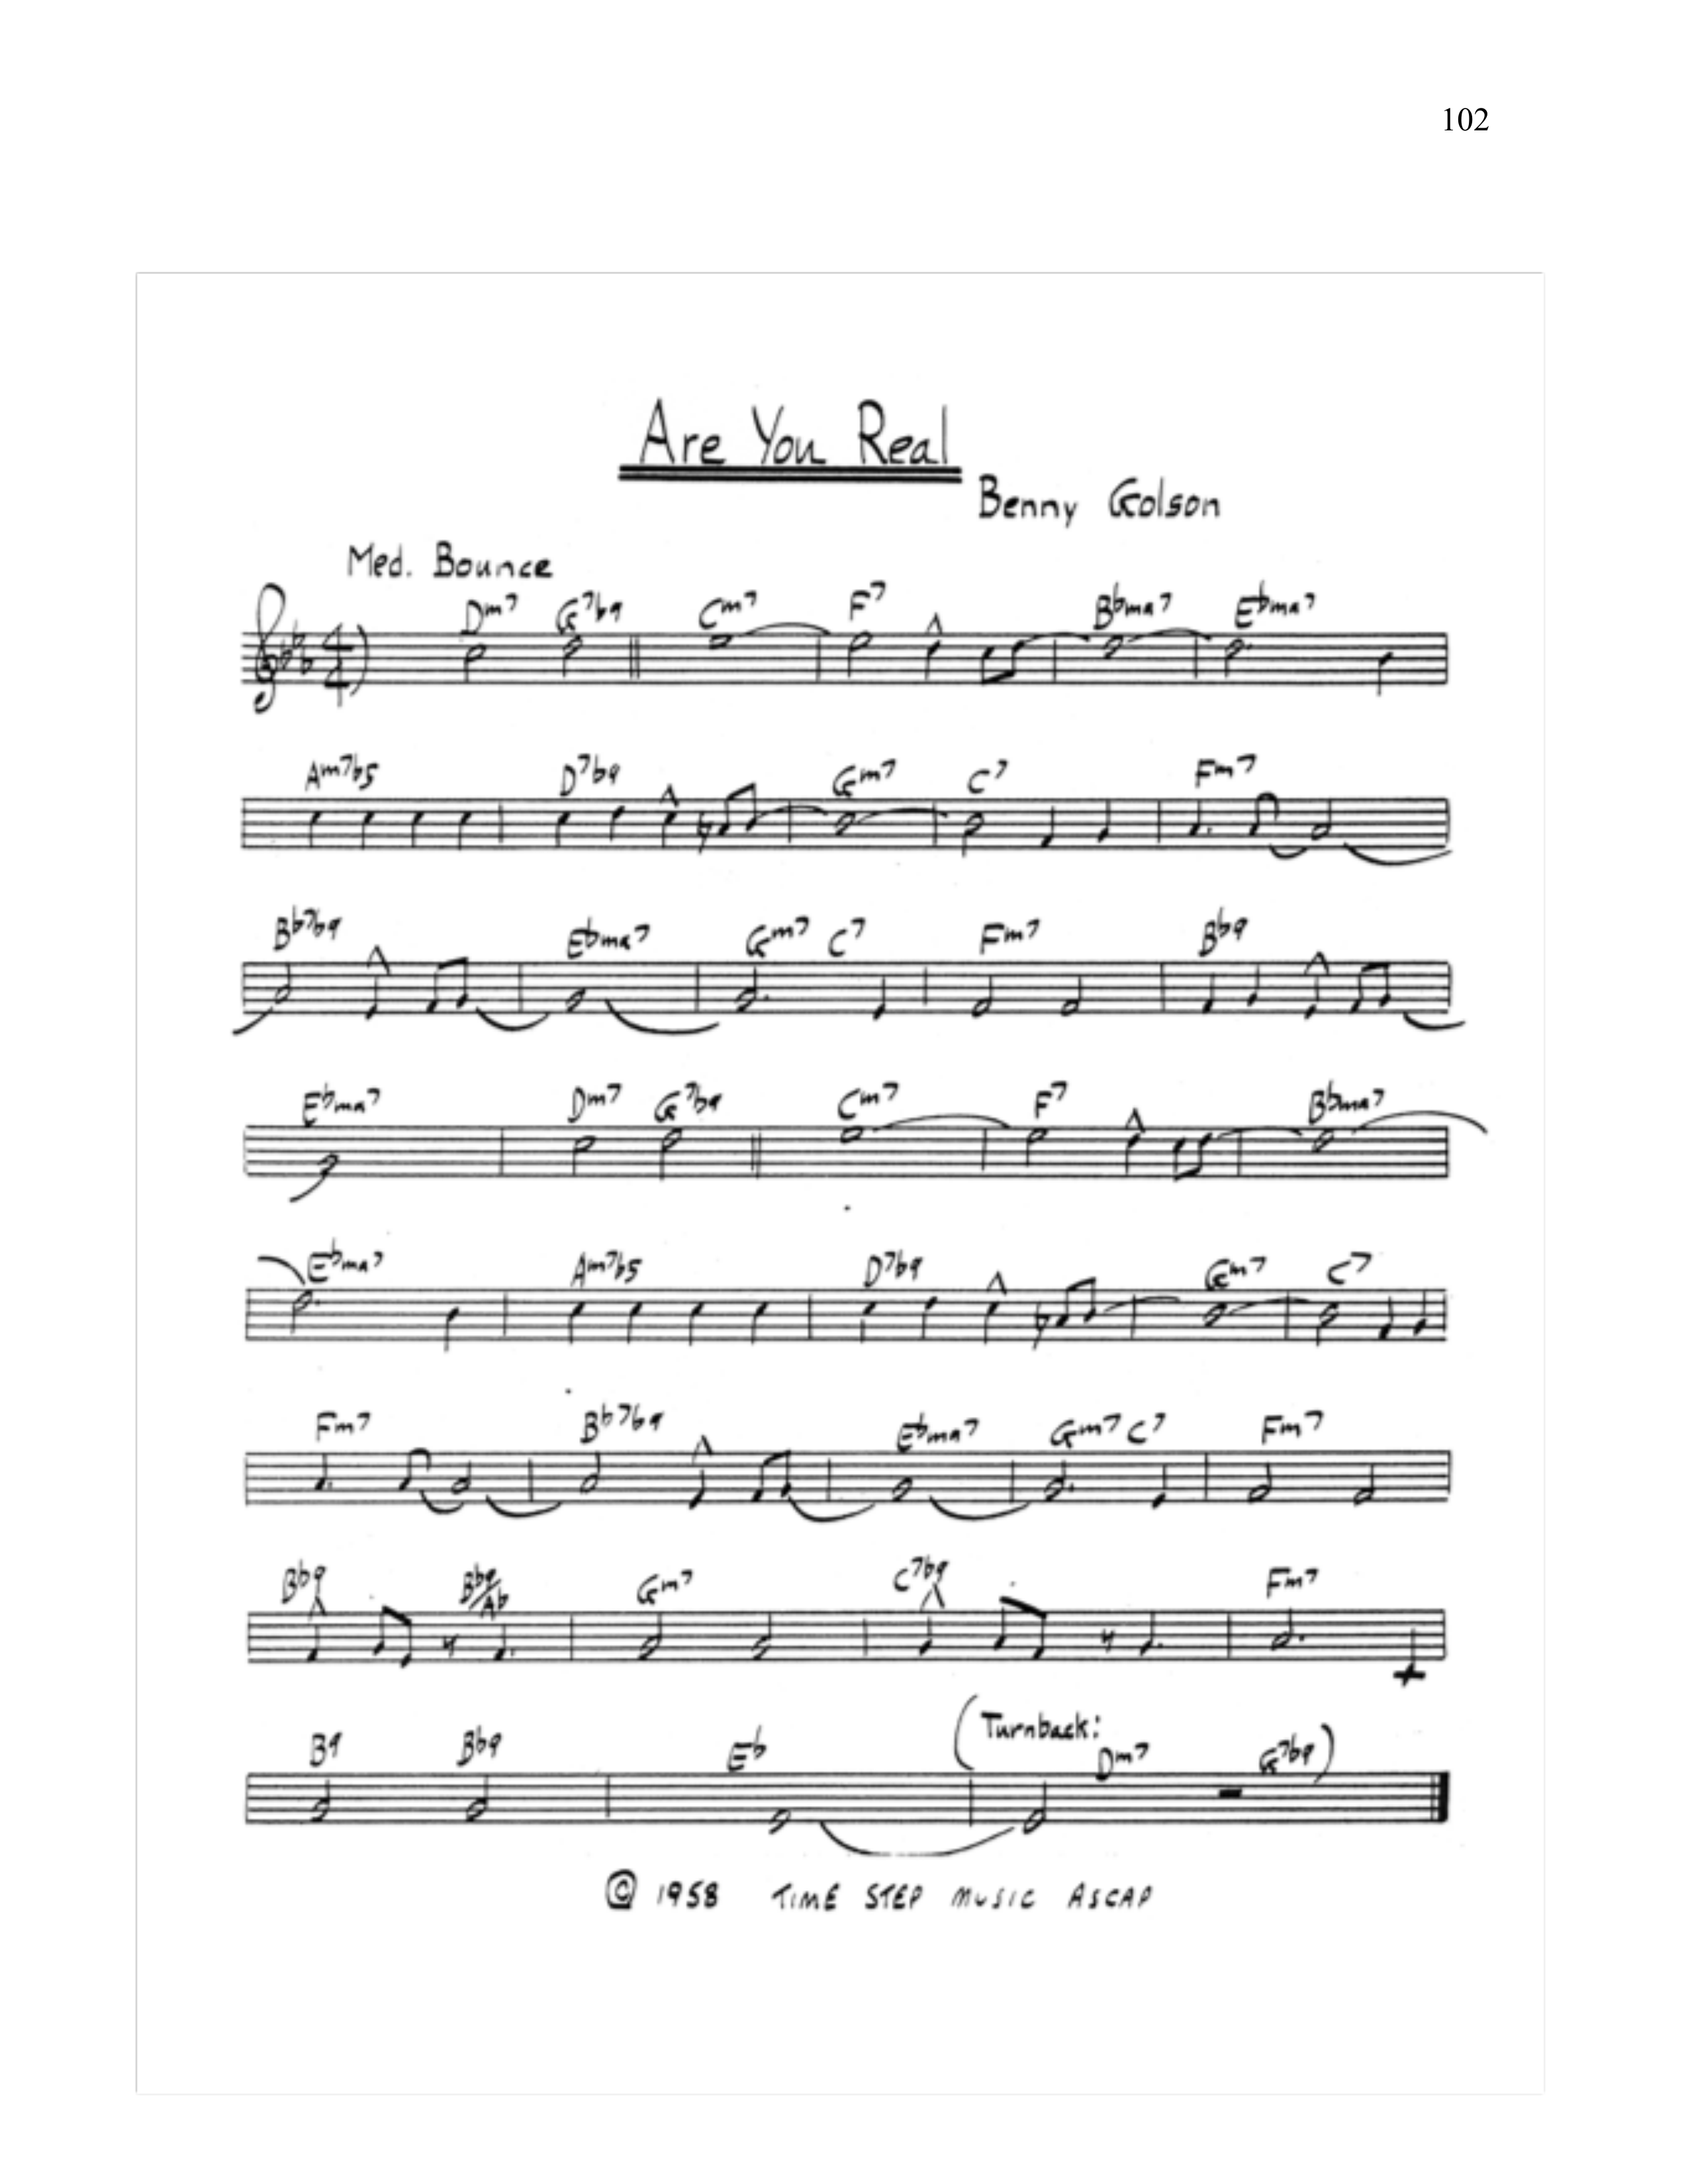 102
Are You Real
Benny Golson
Med. Bounce
4/4
Dm7 G7b9 Cm7 F7 Bbma7 Ebma7
Am7b5 D7b9 Gm7 C7 Fm7
Bb7b9 Ebma7 Gm7 C7 Fm7 Bb9
Ebma7 Dm7 G7b9 Cm7 F7 Bbma7
Ebma7 Am7b5 D7b9 Gm7 C7
Fm7 Bb7b9 Ebma7 Gm7 C7 Fm7
Bb9 Bb9/Ab Gm7 C7b9 Fm7
B9 Bb9 Eb (Turnback: Dm7 G7b9)
© 1958 TIME STEP MUSIC ASCAP